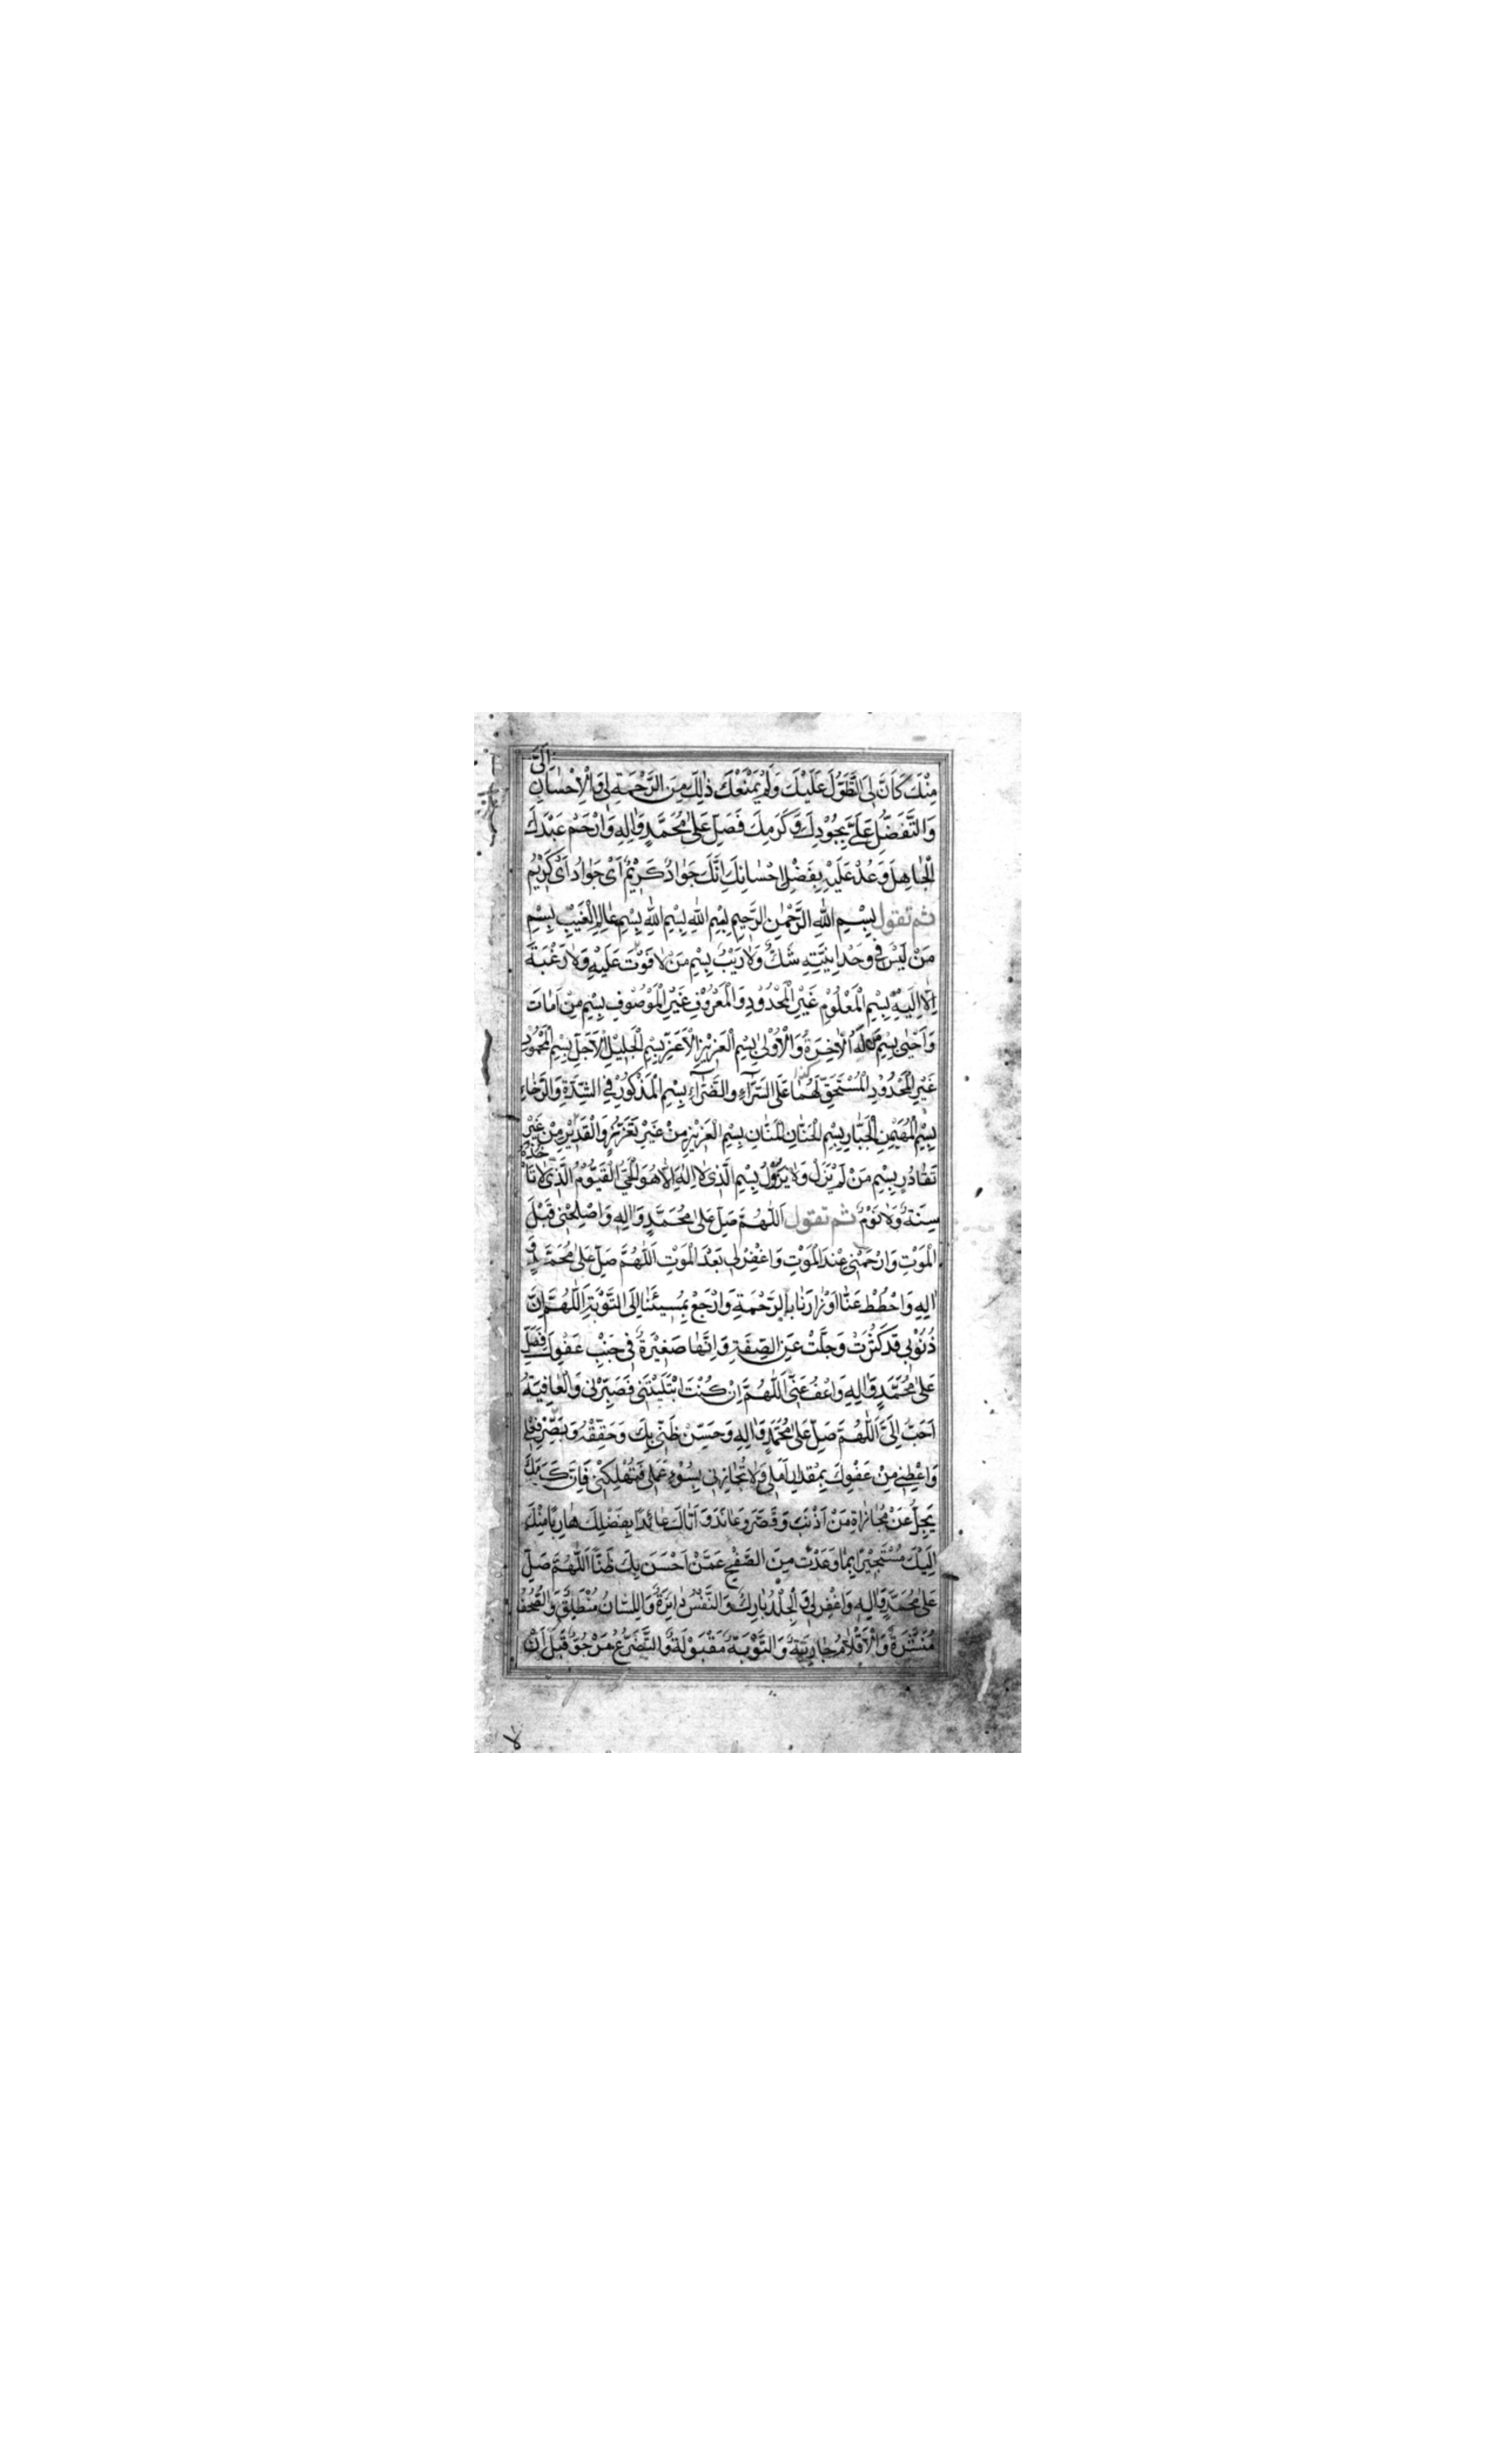 مِنْكَ كَانَ لِيَ التَّطَوُّلَ عَلَيْكَ وَلَمْ يَمْنَعْكَ ذٰلِكَ مِنَ الرَّحْمَةِ لِي وَالْاِحْسَانِ اِلَيَّ
وَالتَّفَضُّلِ عَلَيَّ بِجُودِكَ وَكَرَمِكَ فَصَلِّ عَلٰى مُحَمَّدٍ وَاٰلِهِ وَارْحَمْ عَبْدَكَ
الْجَاهِلَ وَعُدْ عَلَيْهِ بِفَضْلِ اِحْسَانِكَ اِنَّكَ جَوَادٌ كَرِيْمٌ اَيْ جَوَادُ اَيْ كَرِيْمُ
ثم تقول بِسْمِ اللهِ الرَّحْمٰنِ الرَّحِيمِ بِسْمِ اللهِ بِسْمِ اللهِ بِسْمِ عَالِمِ الْغَيْبِ بِسْمِ
مَنْ لَيْسَ فِي وَحْدَانِيَّتِهِ شَكٌّ وَلَا رَيْبٌ بِسْمِ مَنْ لَا فَوْتَ عَلَيْهِ وَلَا رَغْبَةَ
اِلَّا اِلَيْهِ بِسْمِ الْمَعْلُوْمِ غَيْرِ الْمَحْدُوْدِ وَالْمَعْرُوْفِ غَيْرِ الْمَوْصُوْفِ بِسْمِ مَنْ اَمَاتَ
وَاَحْيٰى بِسْمِ مَنْ لَهُ الْاٰخِرَةُ وَالْاُوْلٰى بِسْمِ الْعَزِيْزِ الْاَعَزِّ بِسْمِ الْجَلِيْلِ الْاَجَلِّ بِسْمِ الْمَحْمُوْدِ
غَيْرِ الْمَحْدُوْدِ الْمُسْتَحِقِّ لَهُمَا عَلَى السَّرَّاءِ وَالضَّرَّاءِ بِسْمِ الْمَذْكُوْرِ فِي الشِّدَّةِ وَالرَّخَاءِ
بِسْمِ الْمُهَيْمِنِ الْجَبَّارِ بِسْمِ الْحَنَّانِ الْمَنَّانِ بِسْمِ الْعَزِيْزِ مِنْ غَيْرِ تَعَزُّزٍ وَالْقَدِيْرِ مِنْ غَيْرِ
تَقَادُرٍ بِسْمِ مَنْ لَمْ يَزَلْ وَلَا يَزُوْلُ بِسْمِ الَّذِي لَا اِلٰهَ اِلَّا هُوَ الْحَيُّ الْقَيُّوْمُ الَّذِي لَا تَاْخُذُهُ
سِنَةٌ وَلَا نَوْمٌ ثم تقول اَللّٰهُمَّ صَلِّ عَلٰى مُحَمَّدٍ وَاٰلِهِ وَاصْلِحْنِي قَبْلَ
الْمَوْتِ وَارْحَمْنِي عِنْدَ الْمَوْتِ وَاغْفِرْ لِي بَعْدَ الْمَوْتِ اَللّٰهُمَّ صَلِّ عَلٰى مُحَمَّدٍ وَ
اٰلِهِ وَاحْطُطْ عَنَّا اَوْزَارَنَا بِالرَّحْمَةِ وَارْجِعْ بِمُسِيْئِنَا اِلَى التَّوْبَةِ اَللّٰهُمَّ اِنَّ
ذُنُوْبِي قَدْ كَثُرَتْ وَجَلَّتْ عَنِ الصِّفَةِ وَاِنَّهَا صَغِيْرَةٌ فِي جَنْبِ عَفْوِكَ فَصَلِّ
عَلٰى مُحَمَّدٍ وَاٰلِهِ وَاعْفُ عَنِّي اَللّٰهُمَّ اِنْ كُنْتَ ابْتَلَيْتَنِي فَصَبِّرْنِي وَالْعَافِيَةُ
اَحَبُّ اِلَيَّ اَللّٰهُمَّ صَلِّ عَلٰى مُحَمَّدٍ وَاٰلِهِ وَحَسِّنْ ظَنِّي بِكَ وَحَقِّقْهُ وَبَصِّرْنِي فِعْلِي
وَاَعْطِنِي مِنْ عَفْوِكَ بِمِقْدَارِ اَمَلِي وَلَا تُجَازِنِي بِسُوْءِ عَمَلِي فَتُهْلِكَنِي فَاِنَّ كَرَمَكَ
يَجِلُّ عَنْ مُجَازَاةِ مَنْ اَذْنَبَ وَقَصَّرَ وَعَانَدَ وَاَتَاكَ عَائِذًا بِفَضْلِكَ هَارِبًا مِنْكَ
اِلَيْكَ مُسْتَجِيْرًا بِمَا وَعَدْتَ مِنَ الصَّفْحِ عَمَّنْ اَحْسَنَ بِكَ ظَنًّا اَللّٰهُمَّ صَلِّ
عَلٰى مُحَمَّدٍ وَاٰلِهِ وَاغْفِرْ لِي وَالْجِلْدُ بَارِدٌ وَالنَّفْسُ دَائِرَةٌ وَاللِّسَانُ مُنْطَلِقٌ وَالصُّحُفُ
مُنْشَرَةٌ وَالْاَقْلَامُ جَارِيَةٌ وَالتَّوْبَةُ مَقْبُوْلَةٌ وَالتَّضَرُّعُ مَرْجُوٌّ قَبْلَ اَنْ